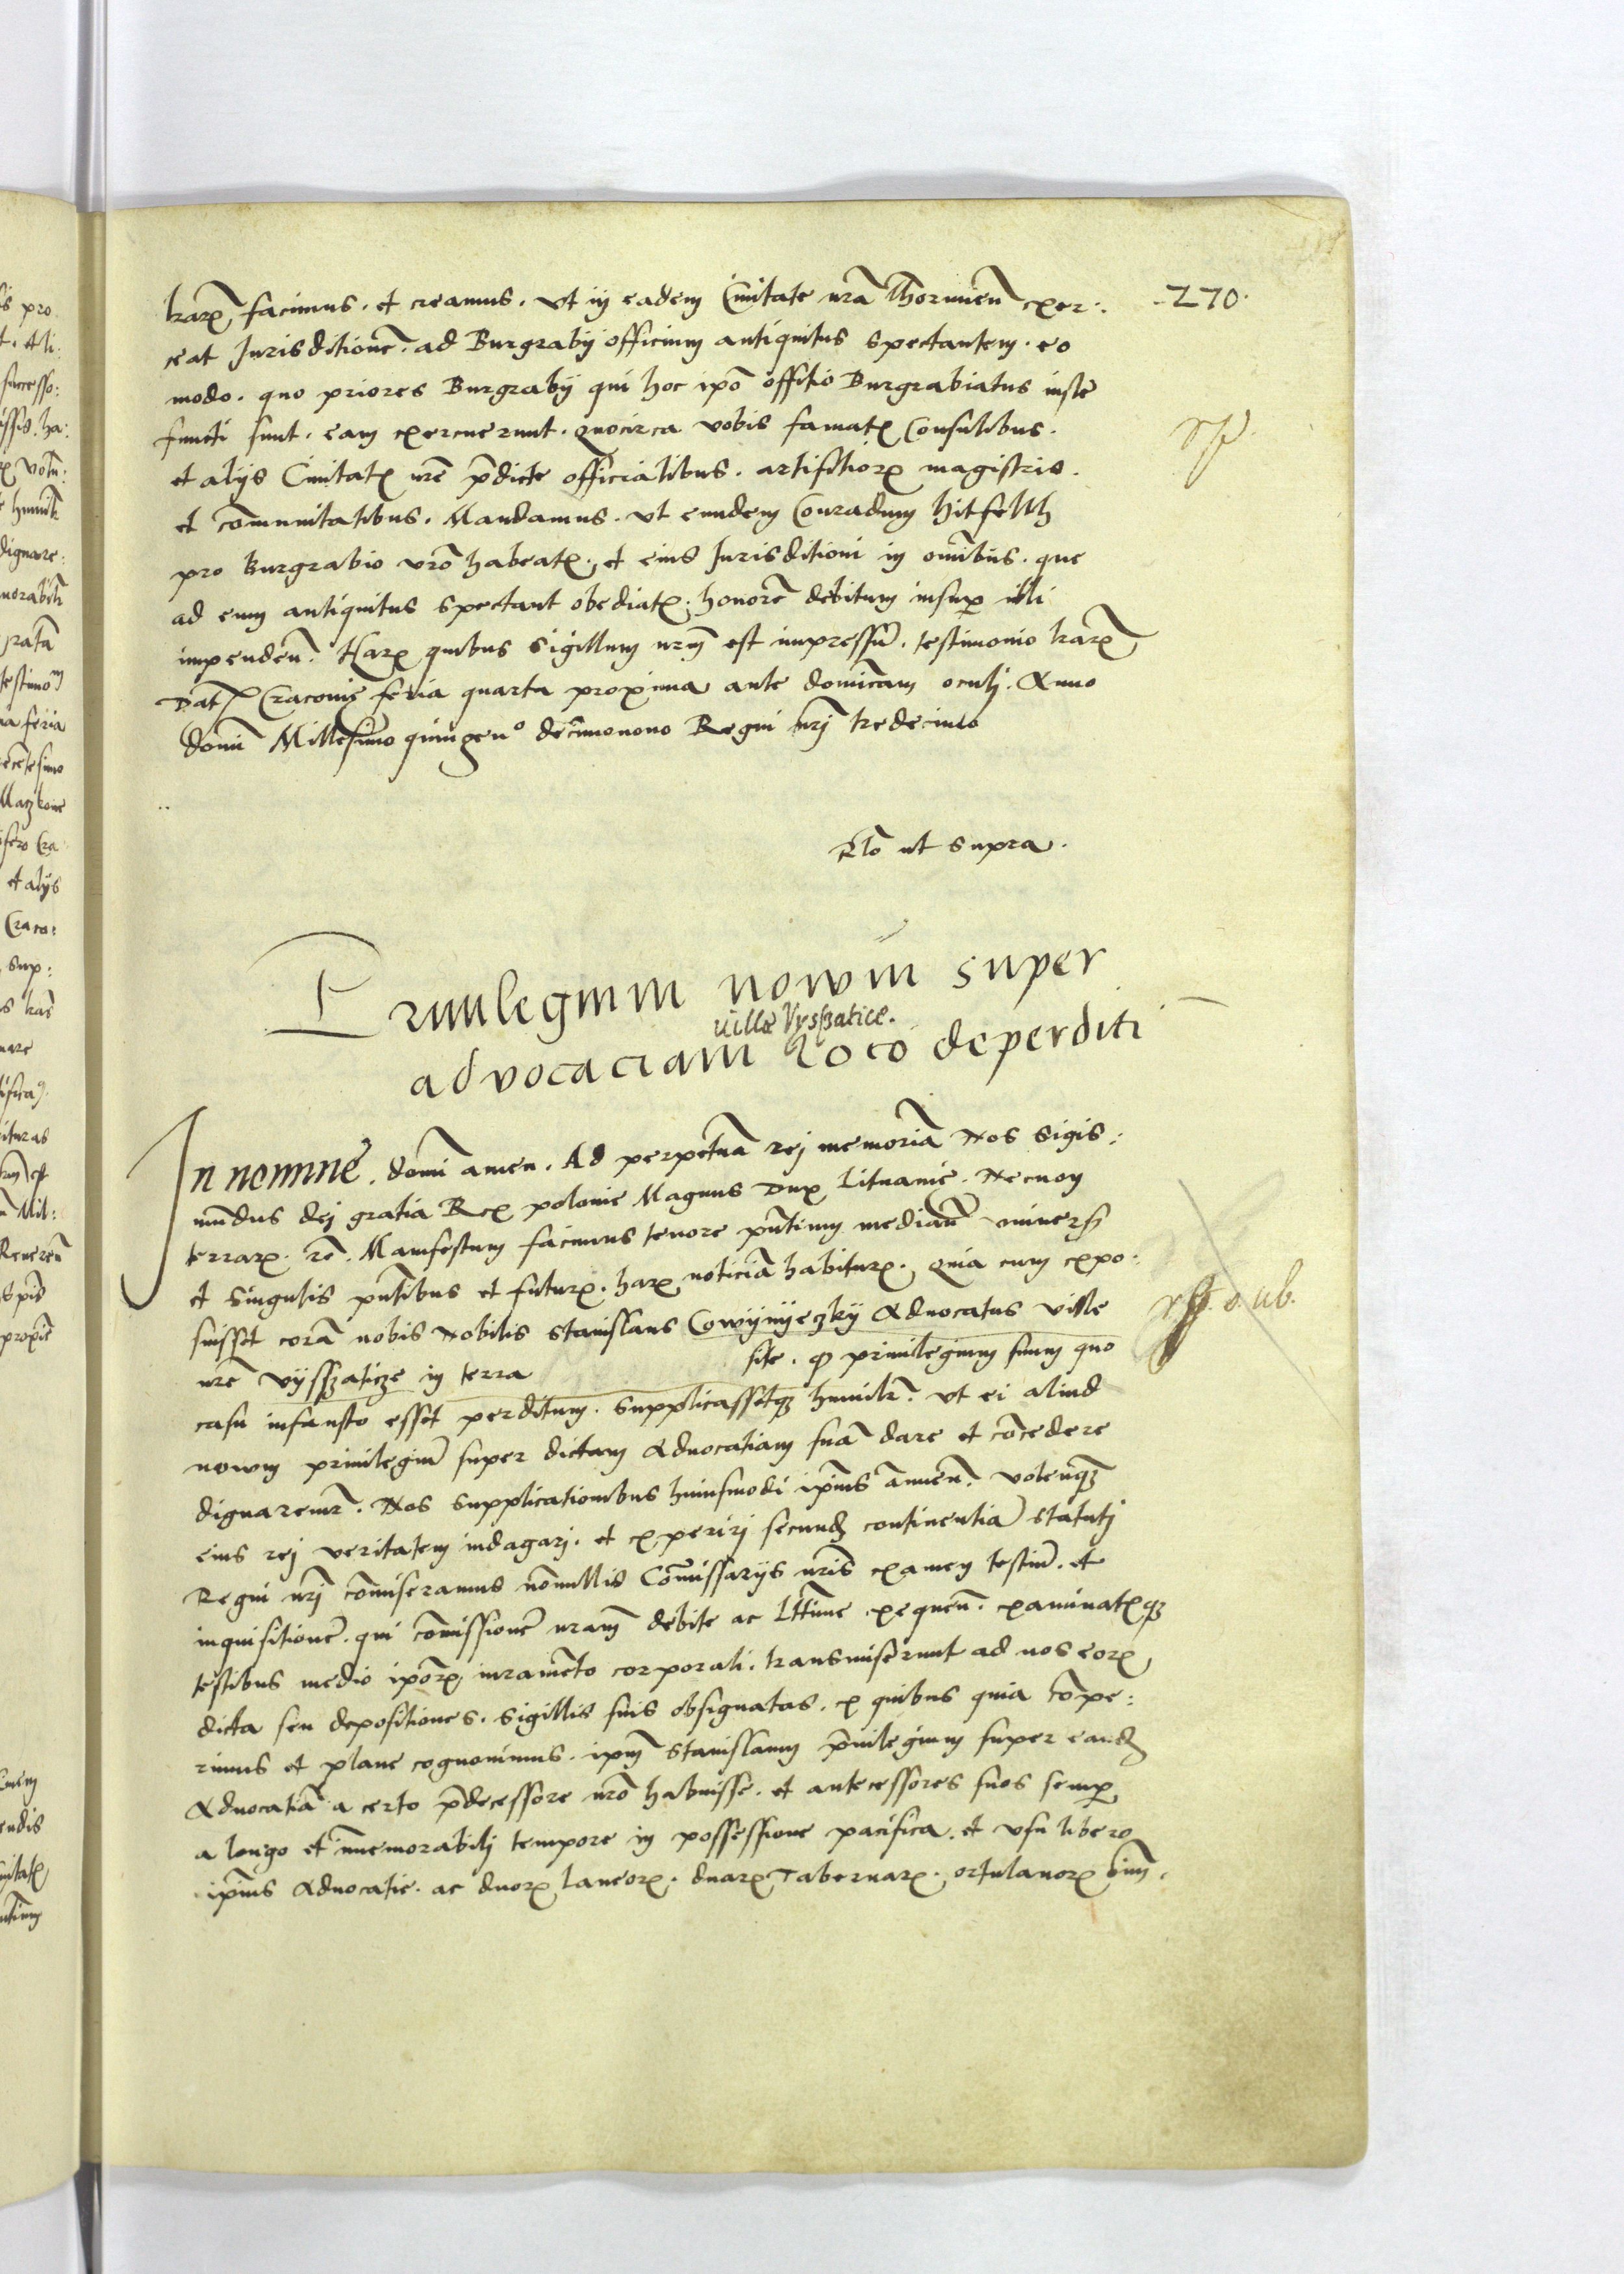 harꝫ facimus. et creamus. Vt in eadem Ciuitate nrã Thorunieñ exer:
ceat Jurisditionẽ. ad Burgrabij officium antiquitus spectantem. eo
modo. quo priores Burgrabij qui hoc ip̃o offitio Burgrabiatus iuste
functi sunt. eam exercuerunt. quocirca vobis famatꝫ Consulibus.
et alijs Ciuitatꝫ nrẽ p̃dicte officialibus. artifitiorꝫ magistris.
et com̃unitatibus. Mandamus. Vt eundem Conradum Hitfelth
pro Burgrabio vrõ habeatꝫ. et eius Jurisditioni in om̃ibus. que
ad eum antiquitus spectant obediatꝫ. honorẽ debitum insup̱ illi
impendeñ. Harꝫ quibus Sigillum nrm̃ est impressũ. testimonio lrarꝫ
Datꝫ Cracouie feria quarta proxima ante dominicam oculi. Anno
domĩ Millesimo quingenº decimonono Regni nrj̃ tredecimo
Rl̃o ut supra.
Priuilegium nowm super
uille Vysszatice.
advocaciam loco deperditi
In nomine. domĩ amen. Ad perpetuã rej memoriã Nos Sigis:
mũdus dej gratia Rex polonie Magnus Dux Lituanie. Necnon
terrarꝫ. rẽ. Manifestum facimus tenore pñtium mediañ vniuersꝫ
et singulis pñtibus et futurꝫ. harꝫ noticiã habiturꝫ. quia cum expo:
suisset corã nobis Nobilis Stanislaus Cowÿnÿeczky Aduocatus ville
nrẽ Vÿsszaticze in terra site. ꝙ priuilegium suum quo
casu infausto esset perditum. Supplicassetqꝫ humilrꝫ. Vt ei aliud
nowm priuilegiũ super dictam Aduocatiam suã dare et cõcedere
dignaremr̃. Nos supplicationibus huiusmodi ip̃ius annueñ. volen̄qꝫ
eius rej veritatem indagarj. et experirj secundꝫ continentiã statutj
Regni nrj̃ com̃iseramus nõnullis Com̃issarijs nrĩs examen testiũ. et
inquisitionẽ. qui com̃issionẽ nram̃ debite ac Lt̃time exequeñ. examinatꝫqꝫ
testibus medio ip̃orꝫ iuramẽto corporali. transmiserunt ad nos eorꝫ
dicta seu depositiones. Sigillis suis obsignatas. ex quibus quia cõpe:
rimus et plane cognouimus. ip̃m Stanislaum p̃uilegium super eandꝫ
Aduocatiã a certo p̃decessore nrõ habuisse. et antecessores suos semp̱
a longo et im̃emorabilj tempore in possessione pacifica. et vsu libero
ip̃ius Aduocatie. ac duorꝫ laneorꝫ. duarꝫ Tabernarꝫ. ortulanorꝫ
270.